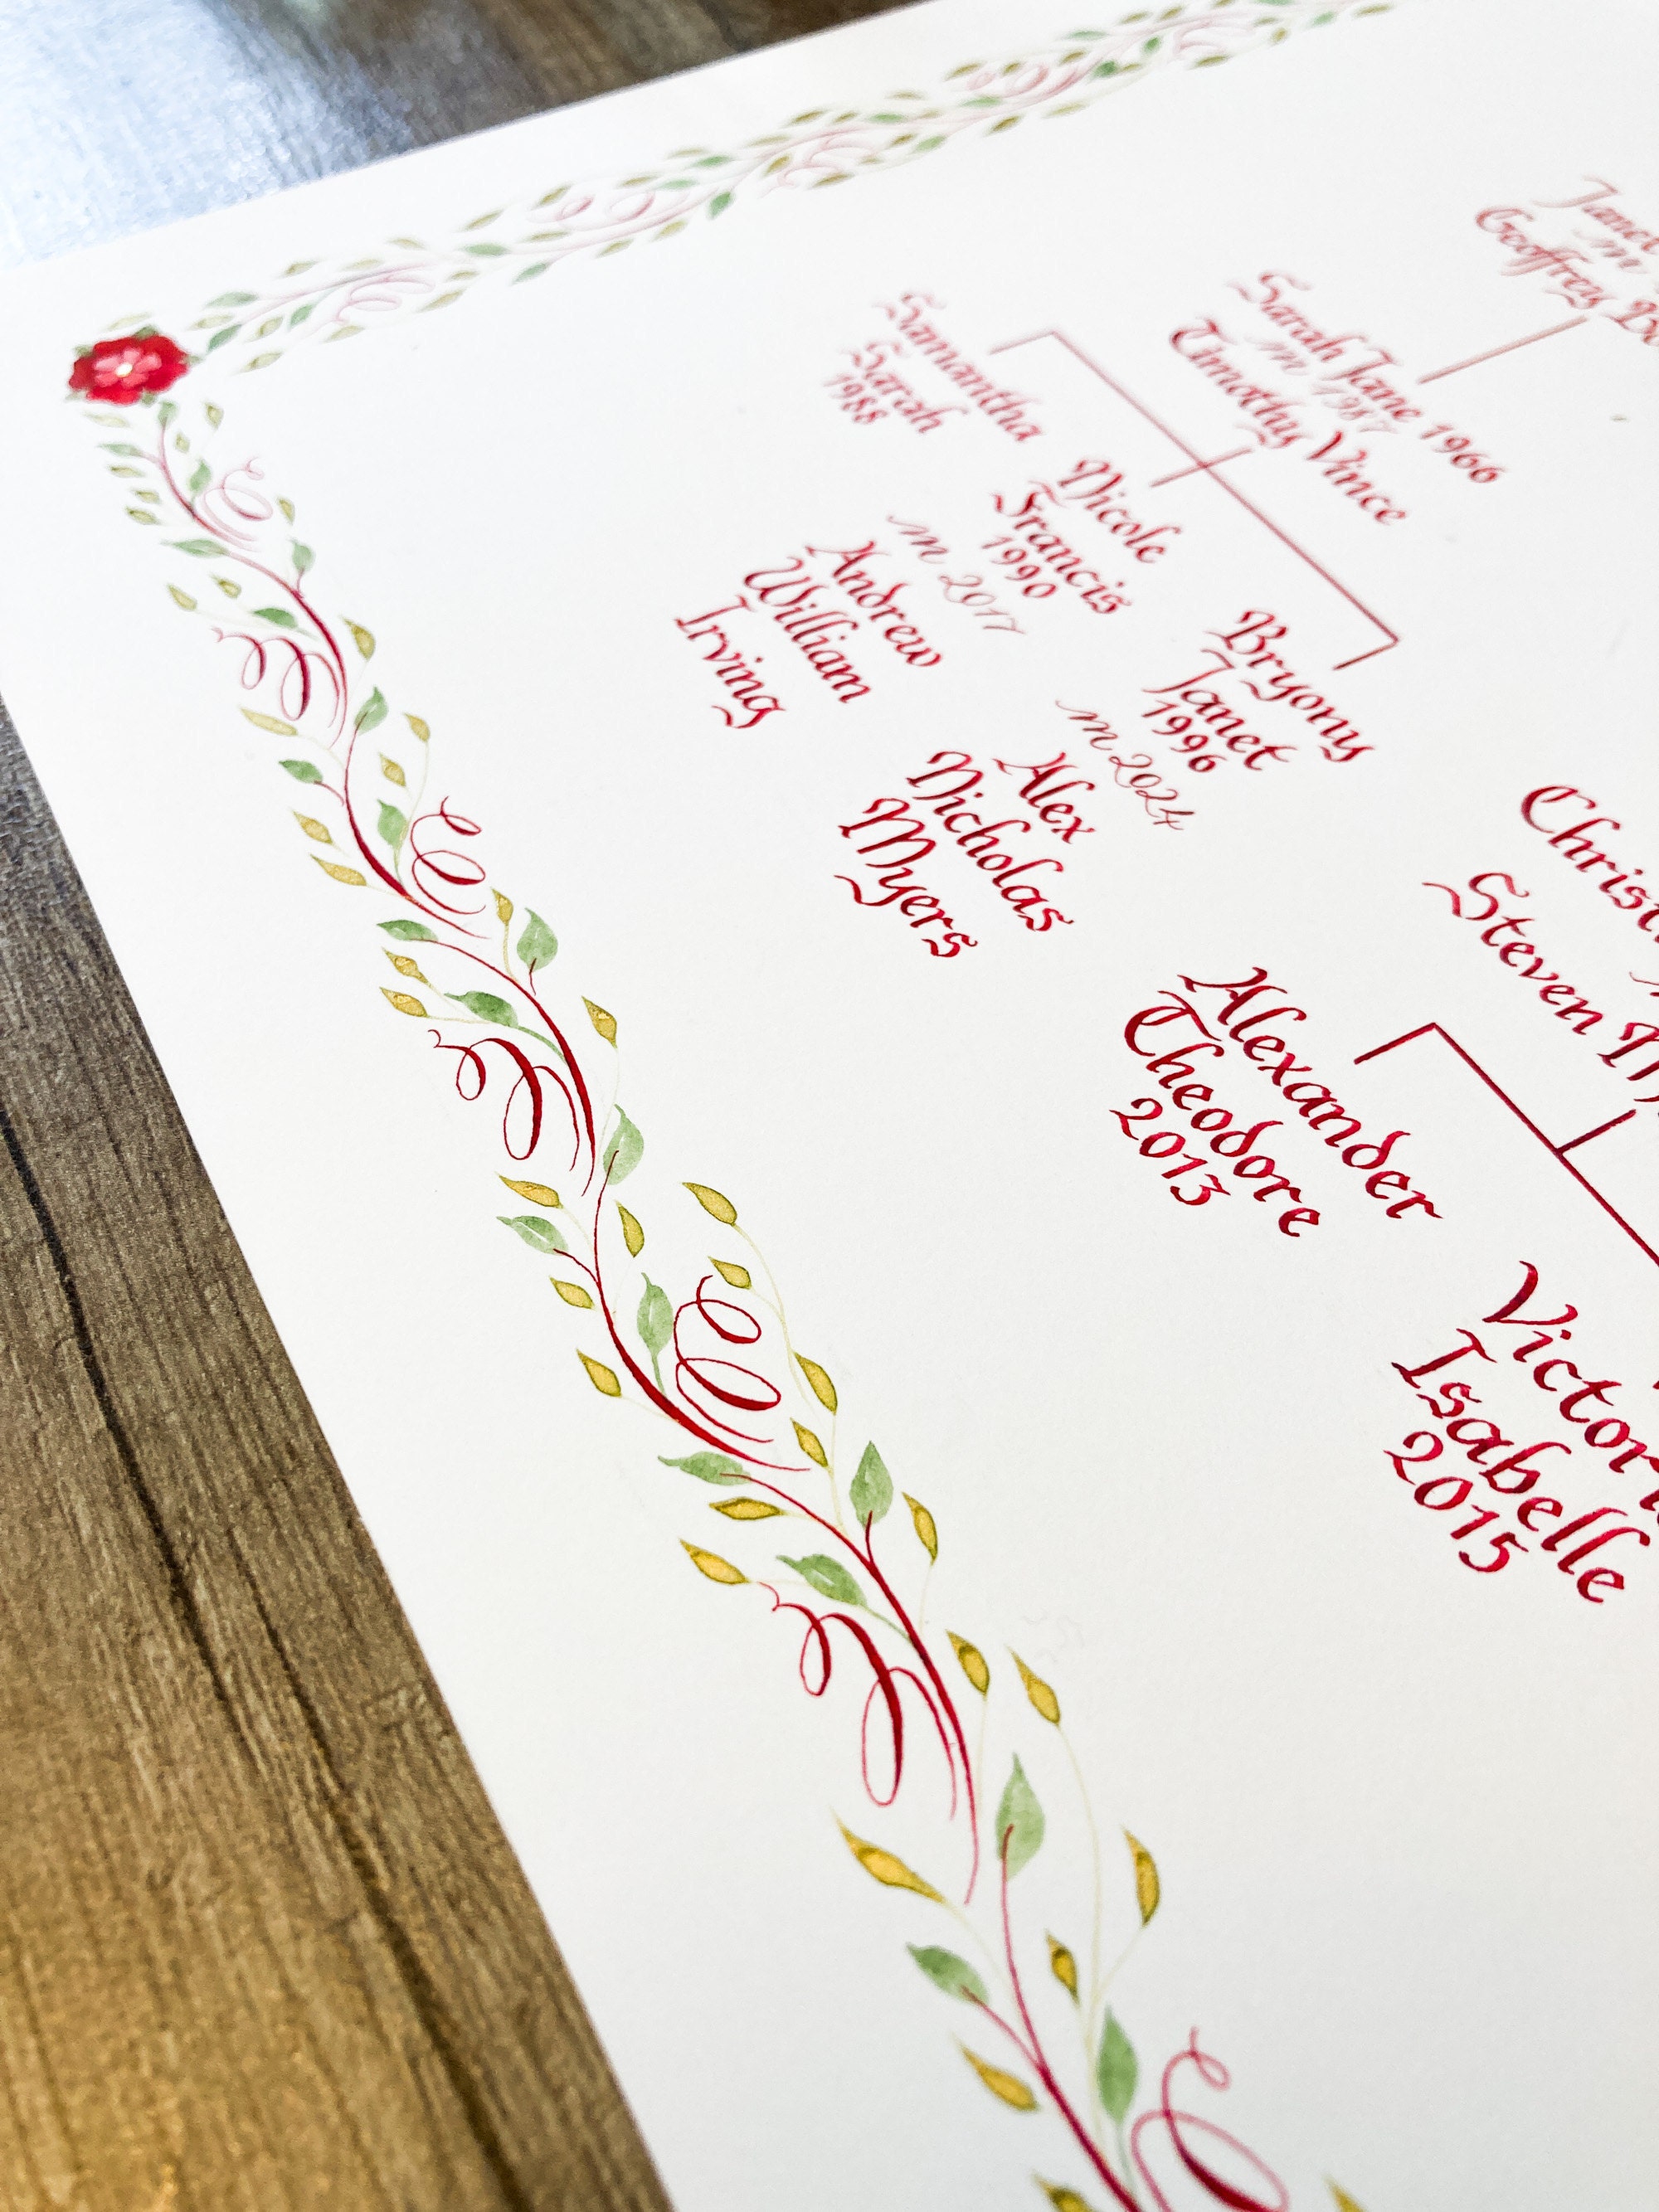 Janet
m
Geoffrey
Sarah Jane 1966
m 1987
Timothy Vince
Samantha
Sarah
1988
Nicole
Francis
1990
m 2017
Andrew
William
Irving
Bryony
Janet
1996
m 2024
Alex
Nicholas
Myers
Steven
Alexander
Theodore
2013
Isabelle
2015